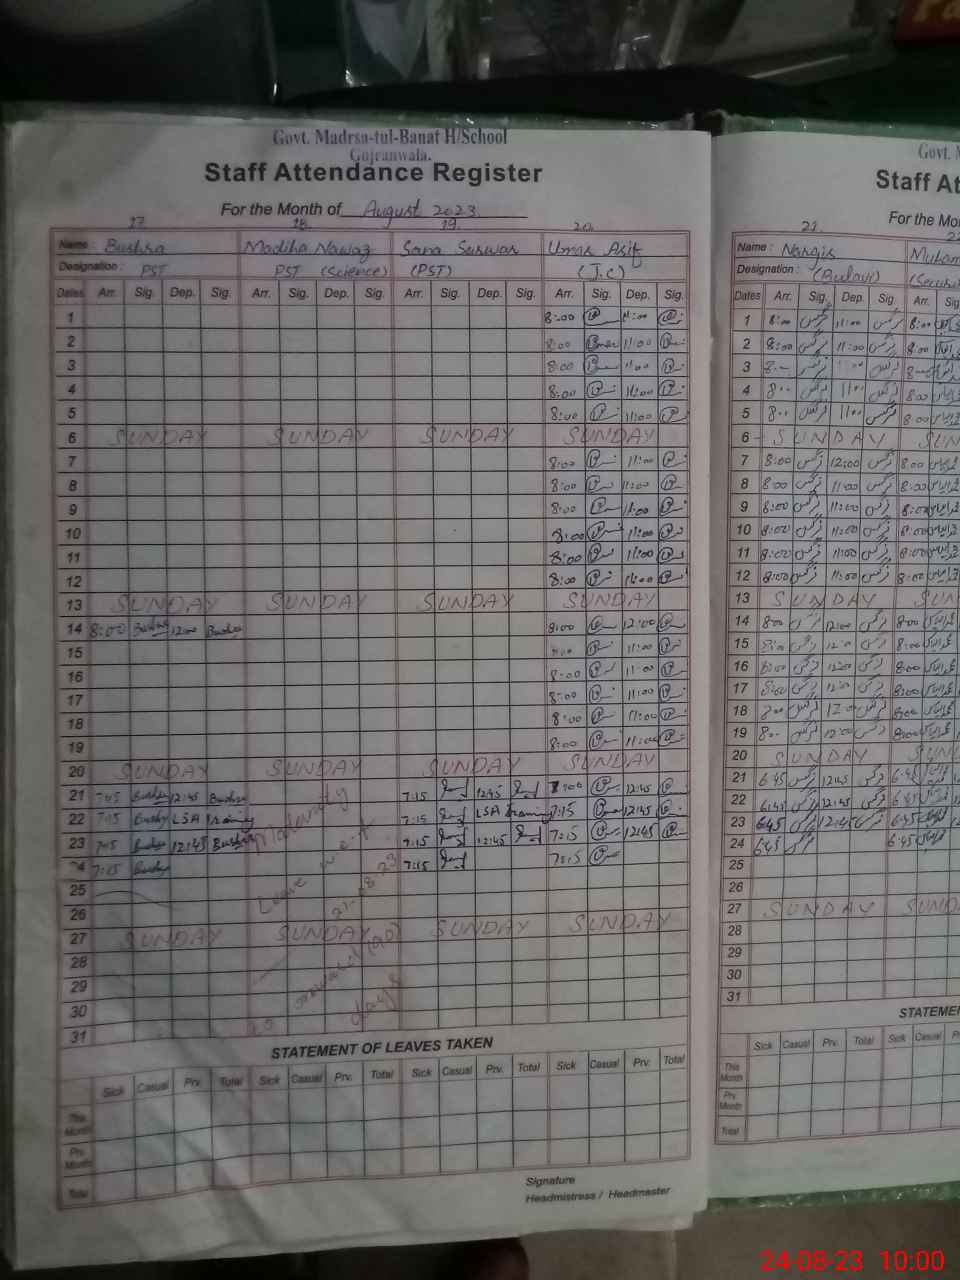 Govt. Madrsa-tul-Banat H/School
Gojranwala.
Staff Attendance Register
For the Month of August 2023
17 18 19 20
Name: Bushra Madiha Nawaz Sana Surwar Umar Asif
Designation: PST PST (Science) (PST) (J.C)
Dates Arr. Sig. Dep. Sig. Arr. Sig. Dep. Sig. Arr. Sig. Dep. Sig. Arr. Sig. Dep. Sig.
1 8:00 11:00
2 8:00 11:00
3 8:00 11:00
4 8:00 11:00
5 8:00 11:00
6 SUNDAY SUNDAY SUNDAY SUNDAY
7 8:00 11:00
8 8:00 11:00
9 8:00 11:00
10 8:00 11:00
11 8:00 11:00
12 8:00 11:00
13 SUNDAY SUNDAY SUNDAY SUNDAY
14 8:00 Bushra 12:00 Bushra 8:00 12:00
15 11:00
16 8:00 11:00
17 8:00 11:00
18 8:00 11:00
19 8:00 11:00
20 SUNDAY SUNDAY SUNDAY SUNDAY
21 7:15 Bushra 12:45 Bushra 7:15 12:45 7:00 12:45
22 7:15 Bushra LSA training 7:15 LSA training 7:15 12:45
23 7:15 Bushra 12:45 Bushra 7:15 12:45 7:15 12:45
24 7:15 Bushra 7:15 7:15
Maternity
Leave w.e.f.
21-08-23
to onward (90)
days
25
26
27 SUNDAY SUNDAY SUNDAY SUNDAY
28
29
30
31
STATEMENT OF LEAVES TAKEN
Sick Casual Prv. Total Sick Casual Prv. Total Sick Casual Prv. Total Sick Casual Prv. Total
This Month
Prv. Month
Total
Signature
Headmistress / Headmaster
Govt.
Staff At
For the Mo
21 22
Name: Nargis Muham
Designation: (Bulavi) (Secur
Dates Arr. Sig. Dep. Sig. Arr. Sig
1 8:00 نرگس 11:00 نرگس 8:00
2 8:00 نرگس 11:00 نرگس 8:00
3 8:00 نرگس 11:00 نرگس 8:00
4 8:00 نرگس 11:00 نرگس 8:00
5 8:00 نرگس 11:00 نرگس 8:00
6 SUNDAY SUN
7 8:00 نرگس 12:00 نرگس 8:00
8 8:00 نرگس 11:00 نرگس 8:00
9 8:00 نرگس 11:00 نرگس 8:00
10 8:00 نرگس 11:00 نرگس 8:00
11 8:00 نرگس 11:00 نرگس 8:00
12 8:00 نرگس 11:00 نرگس 8:00
13 SUNDAY SUN
14 8:00 نرگس 12:00 نرگس 8:00
15 8:00 نرگس 12:00 نرگس 8:00
16 8:00 نرگس 12:00 نرگس 8:00
17 8:00 نرگس 12:00 نرگس 8:00
18 8:00 نرگس 12:00 نرگس 8:00
19 8:00 نرگس 12:00 نرگس 8:00
20 SUNDAY SUN
21 6:45 نرگس 12:45 نرگس 6:45
22 6:45 نرگس 12:45 نرگس 6:45
23 6:45 نرگس 12:45 نرگس 6:45
24 6:45 نرگس 6:45
25
26
27 SUNDAY SUND
28
29
30
31
STATEME
Sick Casual Prv. Total Sick Casual
This Month
Prv. Month
Total
24-08-23 10:00